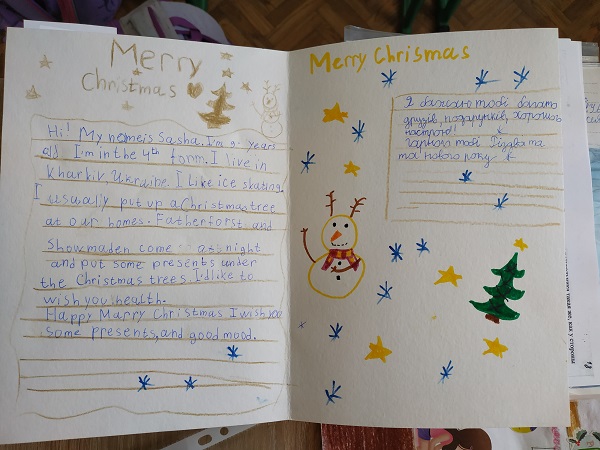 Merry
Christmas
Hi! My name is Sasha. I'm 9 years
old I'm in the 4th form. I live in
Kharkiv, Ukraine. I Like ice skating.
I usually put up a Christmas tree
at our homes. Fatherforst and
Showmaden come at night
and put some presents under
the Christmas trees. I'd like to
wish you health.
Happy Marry Christmas I wish you
some presents, and good mood.
Merry Chrismas
Я бажаю тобі багато
друзів, подарунків, хорошого
настрою!
Гарного тобі Різдва та
та нового року